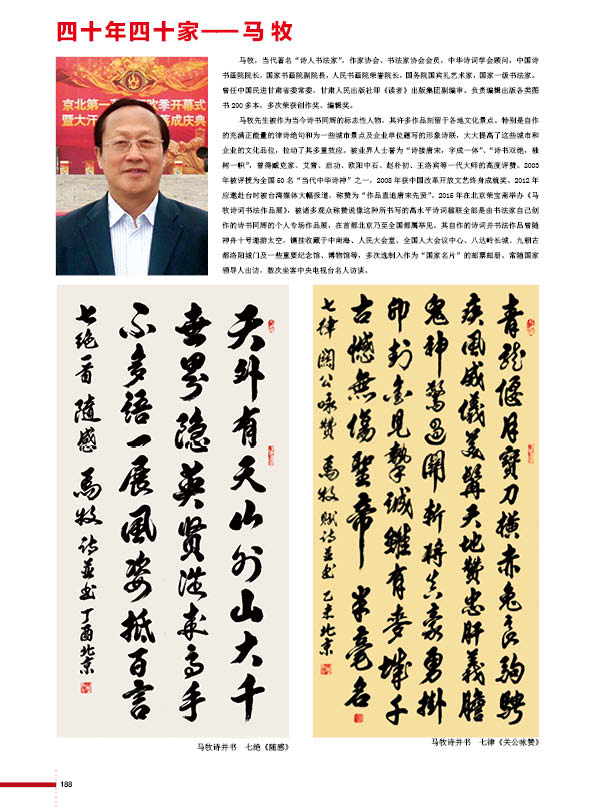 四十年四十家——马牧
京北第一 季开幕式
暨大汗 落成庆典
马牧，当代著名“诗人书法家”，作家协会、书法家协会会员，中华诗词学会顾问，中国诗
书画院院长，国家书画院副院长，人民书画院荣誉院长，国务院国宾礼艺术家，国家一级书法家。
曾任中国民进甘肃省委常委，甘肃人民出版社即《读者》出版集团副编审。负责编辑出版各类图
书200多本，多次荣获创作奖、编辑奖。
马牧先生被作为当今诗书同辉的标志性人物，其许多作品刻留于各地文化景点。特别是自作
的充满正能量的律诗绝句和为一些城市景点及企业单位题写的形象诗联，大大提高了这些城市和
企业的文化品位，拉动了其多重效应。被业界人士誉为“诗接唐宋，字成一体”、“诗书双绝，独
树一帜”，曾得臧克家、艾青、启功、欧阳中石、赵朴初、王洛宾等一代大师的高度评赞。2005
年被评授为全国50名“当代中华诗神”之一，2008年获中国改革开放文艺终身成就奖。2012年
应邀赴台时被台湾媒体大幅报道，称赞为“作品直追唐宋先贤”。2015年在北京荣宝斋举办《马
牧诗词书法作品展》，被诸多观众称赞说像这种所书写的高水平诗词楹联全部是由书法家自己创
作的诗书同辉的个人专场作品展，在首都北京乃至全国都属罕见。其自作的诗词并书法作品曾随
神舟十号遨游太空，镶挂收藏于中南海、人民大会堂、全国人大会议中心、八达岭长城、九朝古
都洛阳城门及一些重要纪念馆、博物馆等，多次选制入作为“国家名片”的邮票邮册。常随国家
领导人出访，数次坐客中央电视台名人访谈。
天外有天山外山大千
世界隐英贤從来高手
不多语一展風姿抵百言
七绝一首 随感 马牧诗并书 丁酉北京
青龍偃月寶刀横赤兔良駒騁
疾風威儀美髯天地赞忠肝義膽
鬼神驚過關斬將真豪勇掛
印封金見摯誠雖有麥城千
古憾無傷聖帝半毫名
七律 關公咏赞 馬牧赋诗並书 乙未北京
马牧诗并书 七绝《随感》
马牧诗并书 七律《关公咏赞》
188